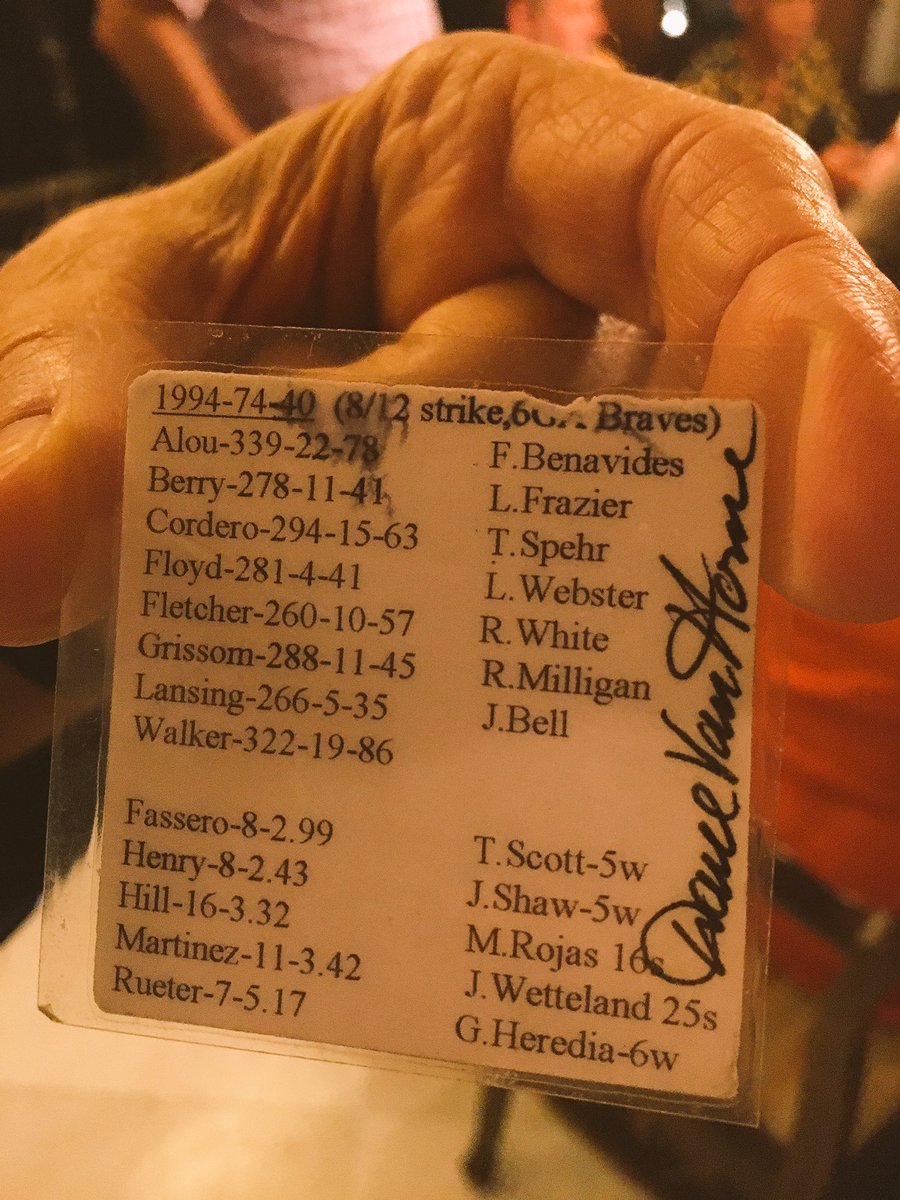 1994-74-40 (8/12 strike,6GA Braves)
Alou-339-22-78
Berry-278-11-41
Cordero-294-15-63
Floyd-281-4-41
Fletcher-260-10-57
Grissom-288-11-45
Lansing-266-5-35
Walker-322-19-86
F.Benavides
L.Frazier
T.Spehr
L.Webster
R.White
R.Milligan
J.Bell
Fassero-8-2.99
Henry-8-2.43
Hill-16-3.32
Martinez-11-3.42
Rueter-7-5.17
T.Scott-5w
J.Shaw-5w
M.Rojas 16s
J.Wetteland 25s
G.Heredia-6w
Dave Van Horne